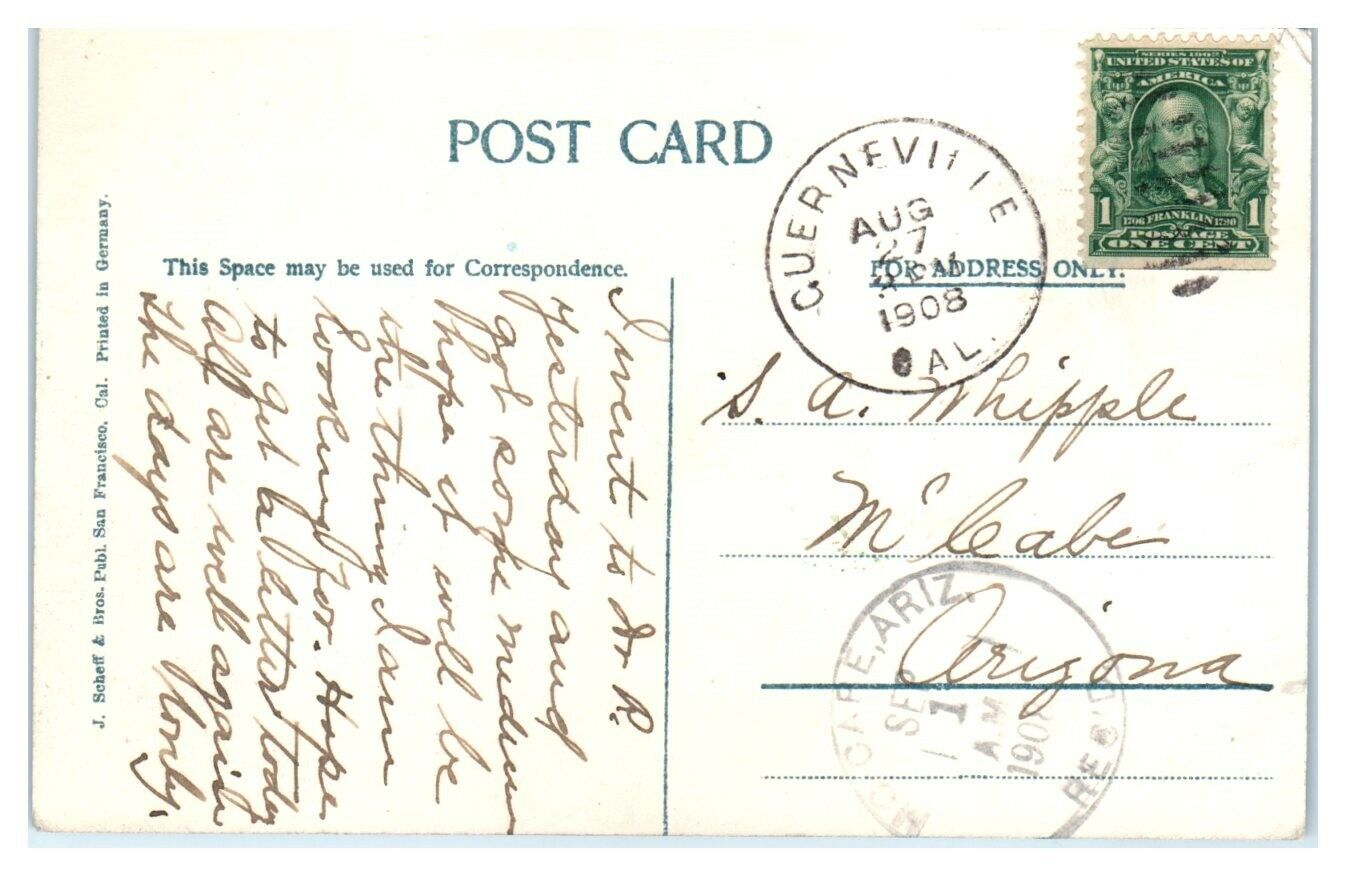 POST CARD
SERIES 1902
UNITED STATES OF
AMERICA
1 1706 FRANKLIN 1790 1
POSTAGE
ONE CENT
GUERNEVILLE
AUG
27
1908
CAL.
This Space may be used for Correspondence.
FOR ADDRESS ONLY.
J. Scheff & Bros. Publ. San Francisco, Cal. Printed in Germany.
I went to Dr R.
yesturday and
got some
hope it will be
the thing I am
looking for. Hope
to get a letter today
All are well again
the days are lonly.
S. A. Whipple
McCabe
Arizona
ARIZ.
SEP
1
AM
1908
REC'D